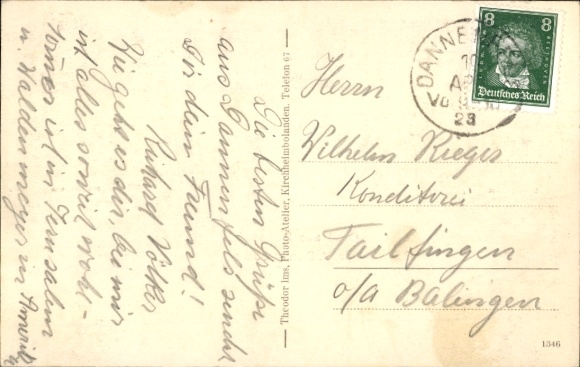 Die besten Grüße
aus Dannenfels sendet
Dir dein Freund!
Richard Völker
Wie geht es dir, bei mir
ist alles soweit wohl-
ist in Jerusalem
u. Waldenmeyer in Amerika
Theodor Ims, Photo-Atelier, Kirchheimbolanden. Telefon 67
8 8
Deutsches Reich
DANNE
28
Herrn
Wilhelm Rieger
Konditorei
Tailfingen
o/a Balingen
1346